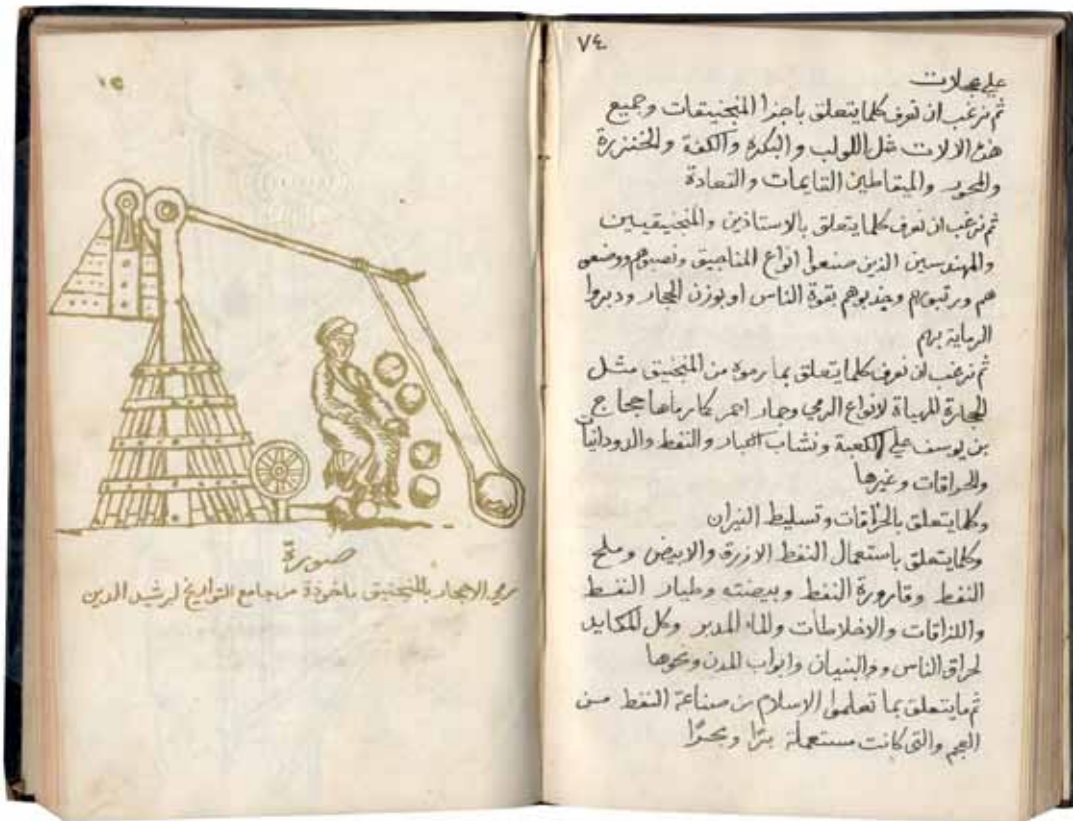 ٧٤
علي عجلات
ثم نرغب ان نعرف كلما يتعلق باجزا المنجنيقات وجميع
هذه الالات مثل اللولب والبكرة والكفة والخنزرة
والمحور والميقاطين القايمات والقعادة
ثم نرغب ان نعرف كلما يتعلق بالاستاذين والمنجنيقيين
والمهندسين الذين صنعوا انواع المناجيق ونصبوهم ووضعو
هم ورتبوهم وجذبوهم بقوة الناس او بوزن الحجار ودبروا
الرماية بهم
ثم نرغب ان نعرف كلما يتعلق بما رموه من المنجنيق مثل
الحجارة المهياة لانواع الرمي وحجار احمر كما رماها حجاج
بن يوسف علي الكعبة ونشاب الجبار والنفط والدودانيات
والحراقات وغيرها
وكلما يتعلق بالحراقات وتسليط النيران
وكلما يتعلق باستعمال النفط الازرق والابيض وملح
النفط وقارورة النفط وبيضته وطيار النفط
واللزاقات والاخلاطات والماء المدبر وكل المكايد
لحراق الناس ووالبنيان وابواب المدن ونحوها
ثم ما يتعلق بما تعلموا الاسلام من صناعة النفط من
العجم والتي كانت مستعملة برًا وبحرًا
صورة
رمي الاحجار بالمنجنيق ماخوذة من جامع التواريخ لرشيد الدين